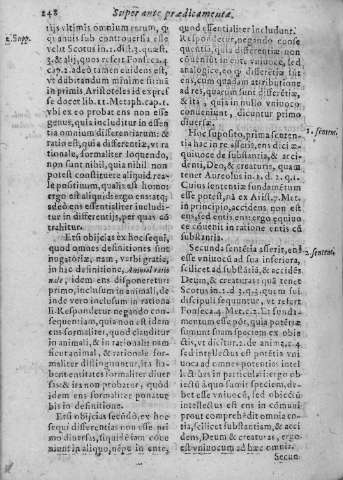 248 Super ante prædicamenta.
2. Supp.
tijs vltimis omnium rerum, q
quanuis sub controuersia esse
velit Scotus in 1. dist. 3. quæst.
3. & alij, quos refert Fonseca 4.
cap. 2. adeò tamen euidens est,
vt dubitandum minimè sit: nã
in primis Aristoteles id expres
se docet lib. 11. Metaph. cap. 1.
vbi ex eo probat ens non esse
genus, quia includitur in essen
tia omnium differentiarum: &
ratio est, quia differentiæ, vt ra
tionale, formaliter loquendo,
non sunt nihil, quia nihil non
potest constituere aliquid rea-
le positiuum, qualis est homo:
ergo est aliquid: ergo ens: atq;
adeò ens essentialiter includi
tur in differentijs, per quas cõ
trahitur.
Et si obijcias ex hoc sequi,
quod omnes definitiones sint
nugatoriæ, nam, verbi gratia,
in hac definitione, Animal ratio
nale, idem ens disponeretur
primo, inclusum in animal, de
inde vero inclusum in rationa
li. Respondetur negando con-
sequentiam, quia non est idem
ens formaliter, quod clauditur
in animali, & in rationali: nam
sicut animal, & rationale for-
maliter distinguntur, ita ha-
bent entitates formaliter diuer
sas: & ita non probatur, quòd
idem ens formaliter ponatur
bis in definitione.
Et si obijcias secundò, ex hoc
sequi differentias non esse pri-
mo diuersas, siquidẽ iam conue
niunt in aliquo, nẽpe in ente,
quod essentialiter includunt.
Respondetur, negando conse
quentiã, quia differentiæ non
conueniũt in ente vniuocè, sed
analogicè, quo differentiæ sut
ens, est enim tam attributione
ad res, quarum sunt differẽtiæ,
& ita, quia in nullo vniuoco
conueniunt, dicuntur primo
diuersæ.
1. senten.
Hoc suposito, prima senten-
tia hac in re asserit, ens dici æ-
quiuocè de substantia, & acci-
denti, Deo, & creaturis, quam
tenet Aureolus in 1. d. 2. q. 1.
Cuius sententiæ fundamẽtum
esse potest, nã ex Arist. 7. Met.
in principio, accidens non est
ens, sed entis ens: ergo equiuo
cè conuenit in ratione entis cũ
substantia.
2. senten.
Secunda sentẽtia asserit, ens
esse vniuocũ ad sua inferiora,
scilicet ad substãtiã, & accidẽs,
Deum, & creaturas: quã tenet
Scotus in 1. d. 3. q. 3. quem sui
discipuli sequuntur, vt refert
Fonseca 4. Met. c. 2. Et funda-
mentum esse põt, quia potẽtiæ
sumunt suam speciem ex obie
ctis, vt dicitur 2. de anima, c. 4.
sed intellectus est potẽtia vni
uoca ad omnes potentias intel
lectiuas in particulari: ergo ob
iectũ à quo sumit speciem, de-
bet esse vniuocũ, sed obiectũ
intellectus est ens in cõmuni
prout cõprehẽdit omnia en-
tia, scilicet substantiam, & acci
dens, Deum & creaturas, ergo
est vniuocum ad hæc omnia.
Secun